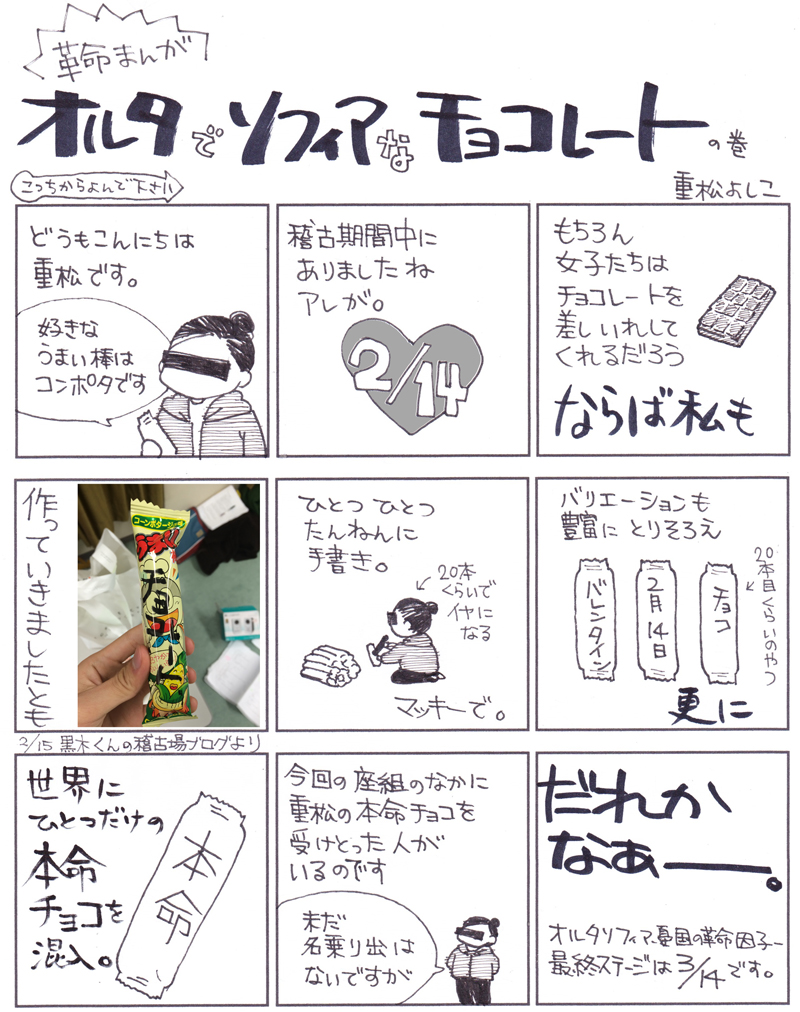 革命まんが
オルタでソフィアなチョコレートの巻
こっちからよんで下さい
重松よしこ
どうもこんにちは
重松です。
好きな
うまい棒は
コンポタです
稽古期間中に
ありましたね
アレが。
2/14
もちろん
女子たちは
チョコレートを
差しいれして
くれるだろう
ならば私も
作っていきましたとも
コーンポタージュ味
うまい棒
チョコレート
3/15 黒木くんの稽古場ブログより
ひとつひとつ
たんねんに
手書き。
20本
くらいで
イヤに
なる
マッキーで。
バリエーションも
豊富にとりそろえ
バレンタイン
2月14日
チョコ
20本目くらいのやつ
更に
世界に
ひとつだけの
本命
チョコを
混入。
本命
今回の座組のなかに
重松の本命チョコを
受けとった人が
いるのです
未だ
名乗り出は
ないですが
だれか
なあー。
オルタソフィア-憂国の革命因子-
最終ステージは3/14です。